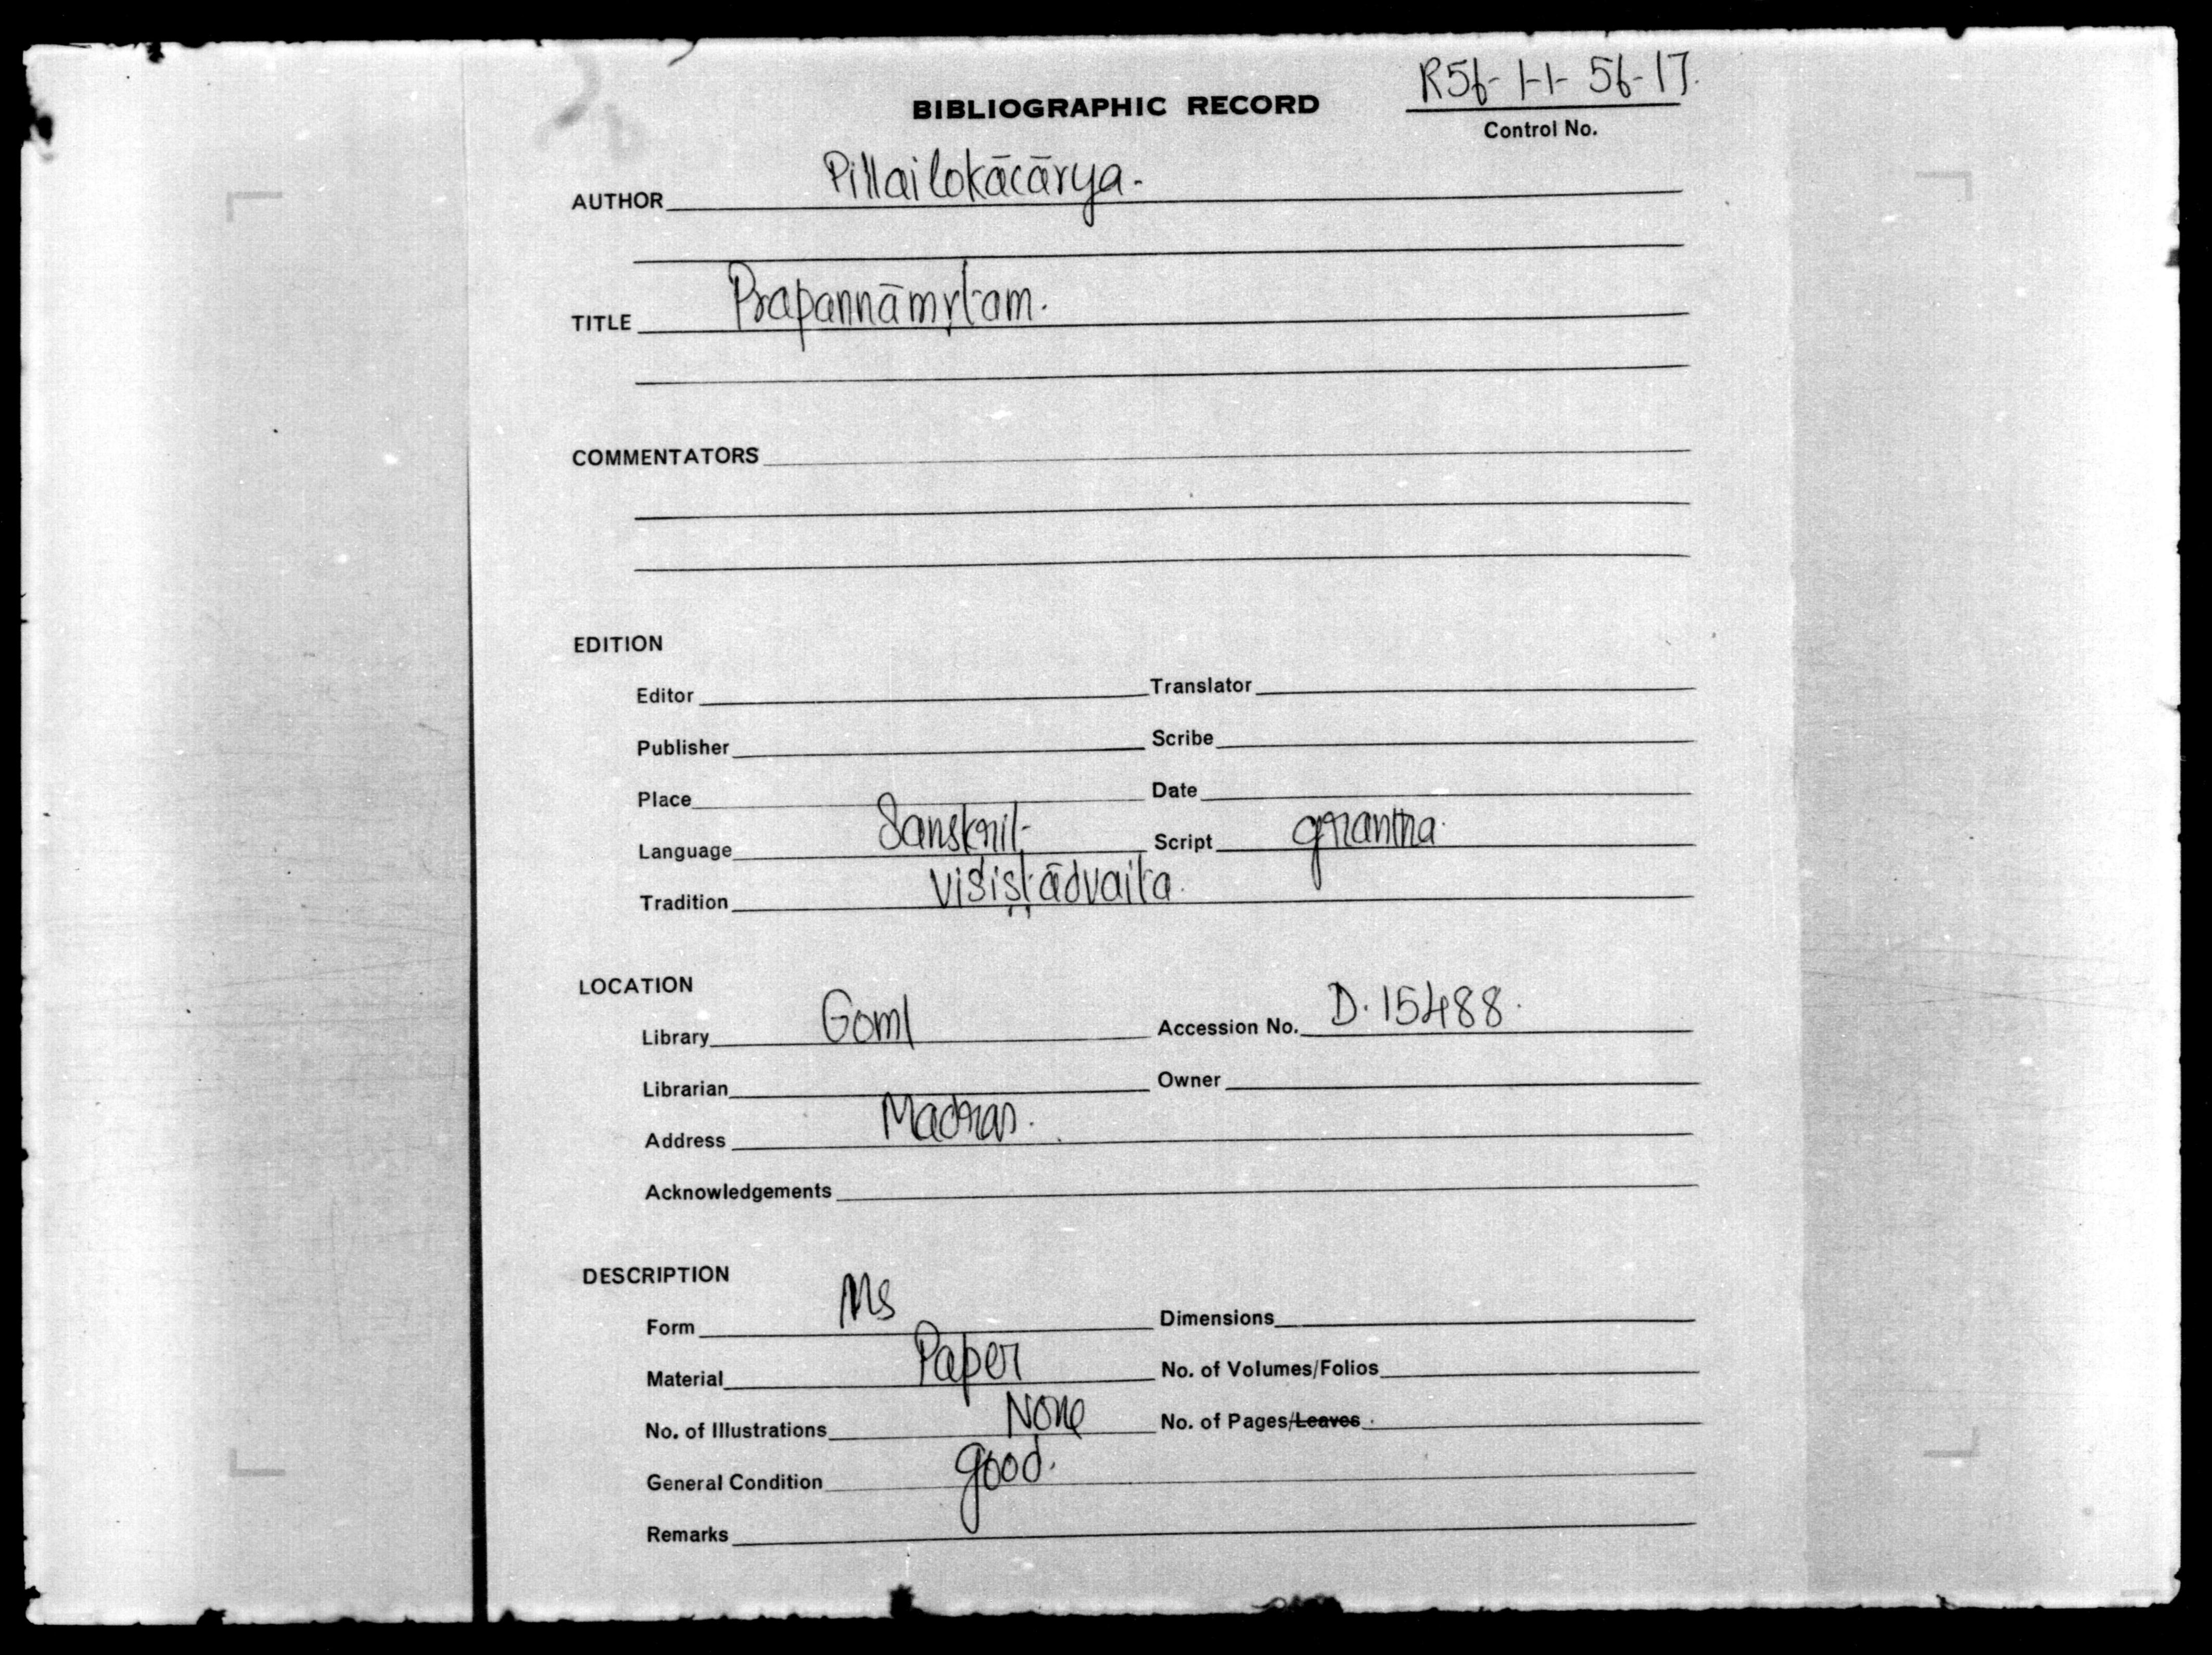 R56-1-1-56-17.
BIBLIOGRAPHIC RECORD
Control No.
AUTHOR Pillailokācārya.
TITLE Prapannāmṛtam.
COMMENTATORS
EDITION
Editor Translator
Publisher Scribe
Place Date
Language Sanskrit Script grantha.
Tradition Viśiṣṭādvaita.
LOCATION
Library Goml Accession No. D. 15488.
Librarian Owner
Address Madras.
Acknowledgements
DESCRIPTION
Form Ms Dimensions
Material Paper No. of Volumes/Folios
No. of Illustrations None No. of Pages/Leaves
General Condition good.
Remarks